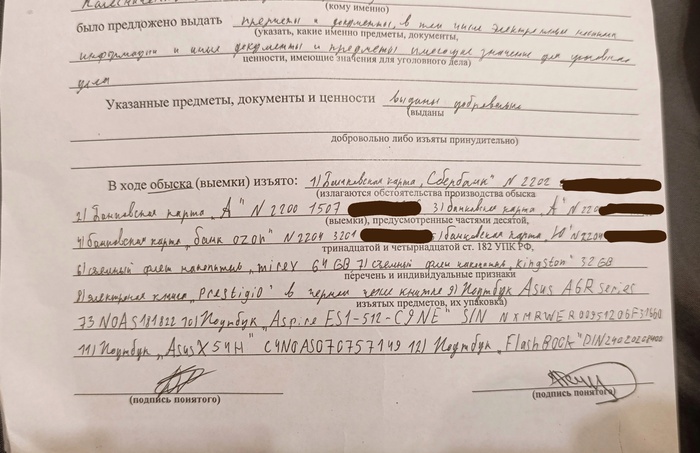 (кому именно)
было предложено выдать предметы и документы, в том числе электронные носители
(указать, какие именно предметы, документы,
информации и иные документы и предметы имеющие значение для уголовного
ценности, имеющие значения для уголовного дела)
дела
Указанные предметы, документы и ценности выданы добровольно
(выданы
добровольно либо изъяты принудительно)
В ходе обыска (выемки) изъято: 1) Банковская карта „Сбербанк" N 2202
(излагаются обстоятельства производства обыска
2) Банковская карта „А" N 2200 1507 3) банковская карта „А" N 220
(выемки), предусмотренные частями десятой,
4) банковская карта „банк ozon" N 2204 3201 5) банковская карта „Ю" N 2204
тринадцатой и четырнадцатой ст. 182 УПК РФ,
6) съемный флеш накопитель „mirex 64 GB 7) съемный флеш накопитель „kingston" 32 GB
перечень и индивидуальные признаки
8) электронная книга „Prestigio" в черном чехле книжке 9) Ноутбук Asus A6R series
изъятых предметов, их упаковка)
73NOAS181822 10) Ноутбук „Aspire ES1-512-C9NE" S/N
11) Ноутбук „Asus X54H" C4NOAS070757149 12) Ноутбук „FlashBook"
(подпись понятого) (подпись понятого)